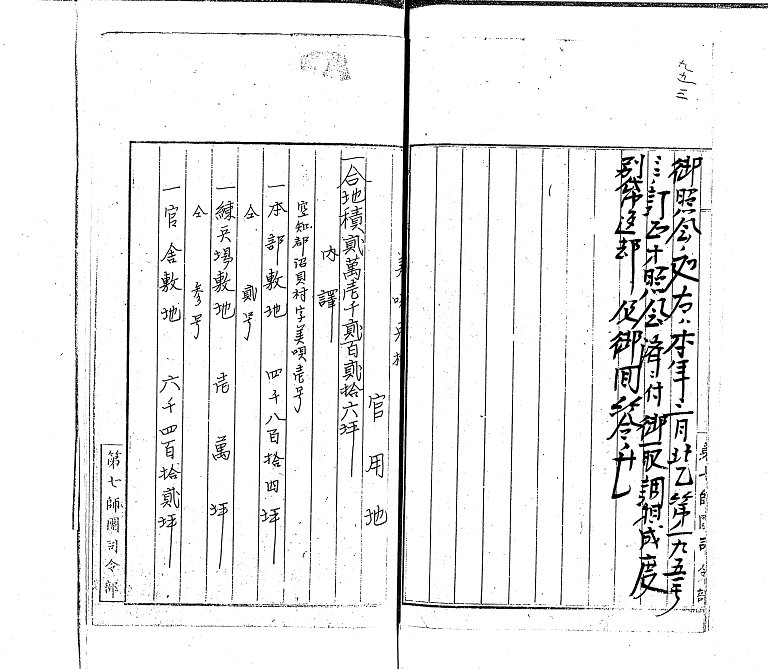 九五三
御照会和右ハ本年二月北乙第一九五号
ミ訂正ヲ照会済ニ付御取調相成度
別帋返却
第七師團司令部
美唄兵村
官用地
一合地積貳萬壱千貳百貳拾六坪
内譯
空知郡沼貝村字美唄壱号
一本部敷地 四千八百拾四坪
仝 貳号
一練兵場敷地 壱萬坪
仝 参号
一官舎敷地 六千四百拾貳坪
第七師團司令部